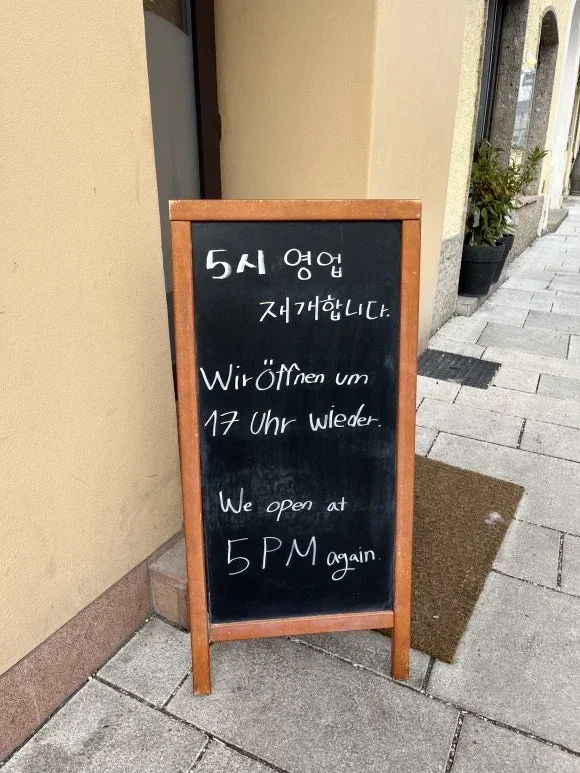 5시 영업
재개합니다.
Wir Öffnen um
17 Uhr wieder.
We open at
5 PM again.